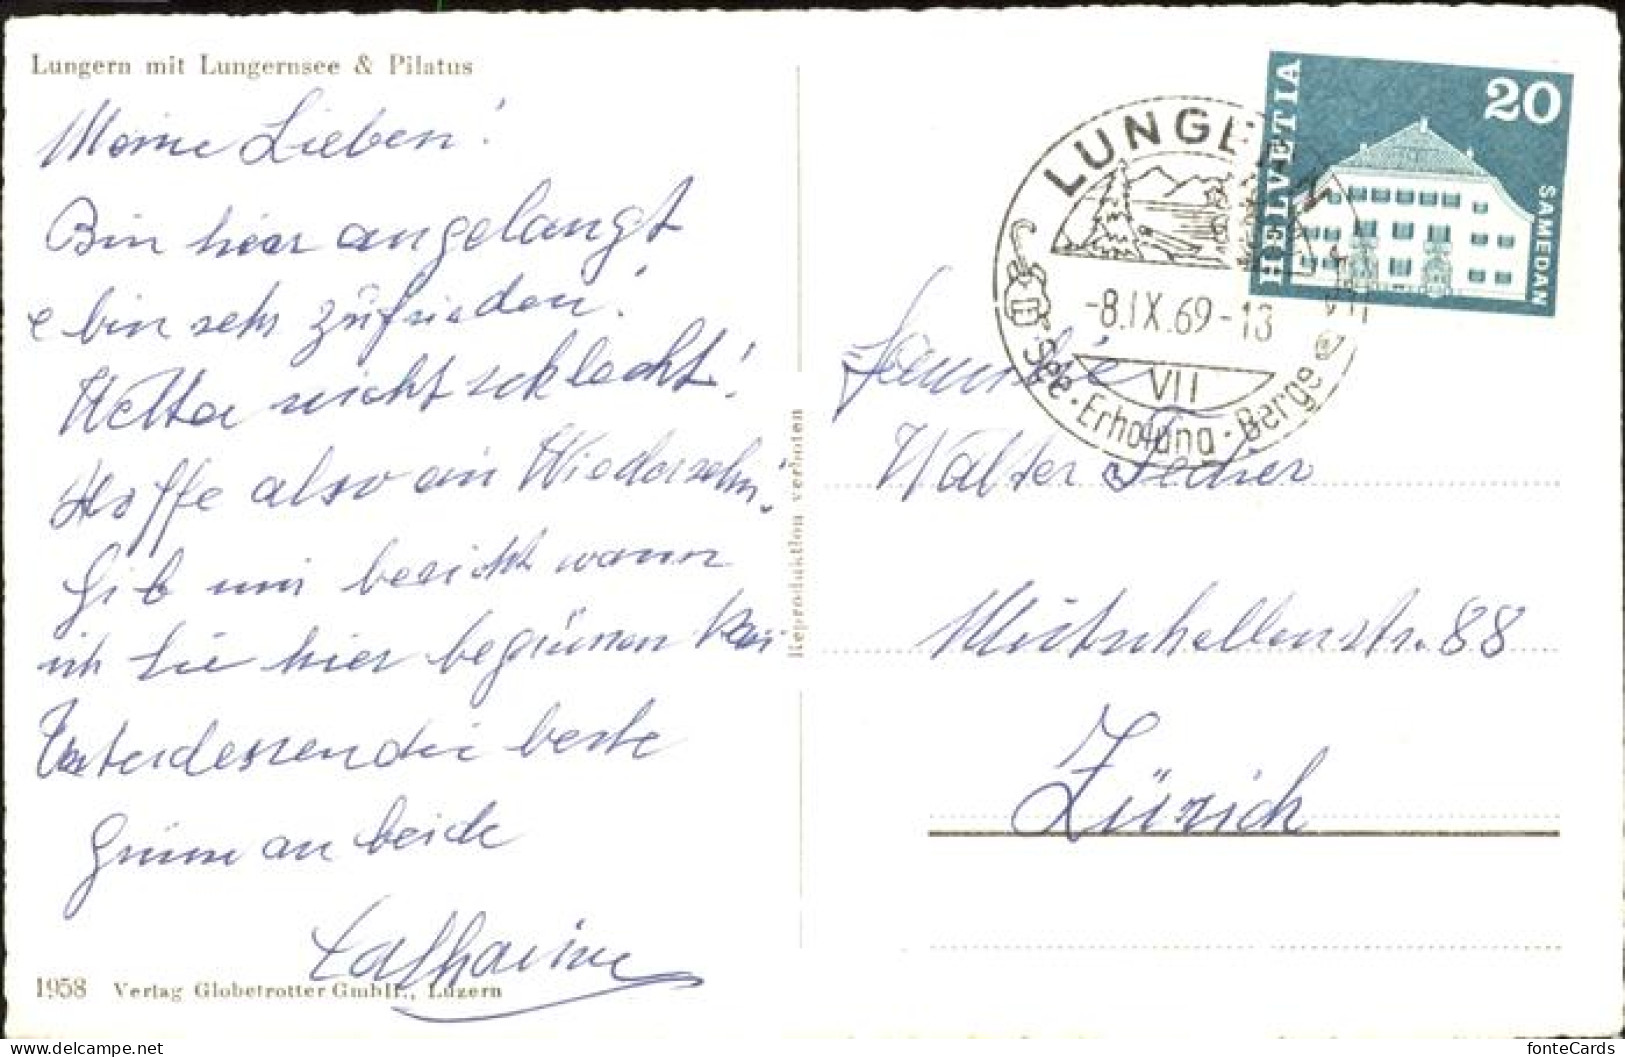 Lungern mit Lungernsee & Pilatus
Meine Lieben!
Bin hier angelangt
& bin sehr zufrieden!
Wetter nicht schlecht!
Hoffe also ein Wiedersehn!
Gib mir bericht wann
ich Sie hier begrüssen kan
Unterdessen die beste
Grüsse an beide
Catharine
1958 Verlag Globetrotter GmbH., Luzern
Reproduktion verboten
LUNGERN
-8.IX.69-18
VII
See · Erholung · Berge
HELVETIA
20
SAMEDAN
Familie
Walter Fecher
Mutschellenstr. 88
Zürich
fonteCards
www.delcampe.net